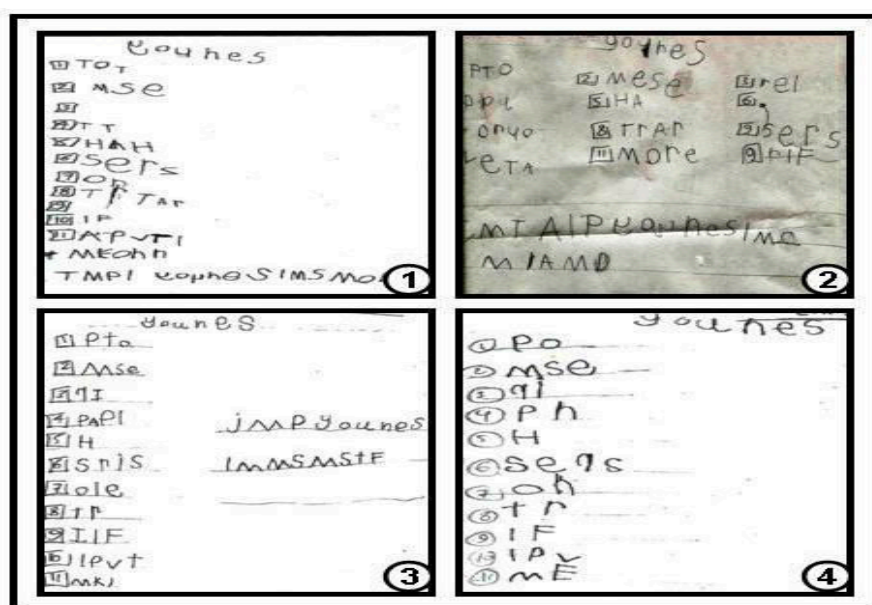 younes
1 TOT
2 MSe
3
4 TT
5 HAH
6 Sers
7 OP
8 TP TAr
9
10 IP
11 APVTI
+ MEOhh
TMPI younes IMSMO
1
younes
PTO 2 Mese 3 rel
5 HA 6
onyo 8 TrAr 9 sers
eTA 11 More 9 PIF
MTAIP younes IMe
MIAMD
2
younes
1 Pto
2 Mse
3 qI
4 PAPI
5 H
6 SrIS
7 ole
8 tr
9 IIF
10 IPvt
11 MKI
jMP younes
IMMSMStF
3
younes
1 PO
2 mse
3 qI
4 Ph
5 H
6 seqs
7 oh
8 tr
9 IF
10 IPv
11 mE
4